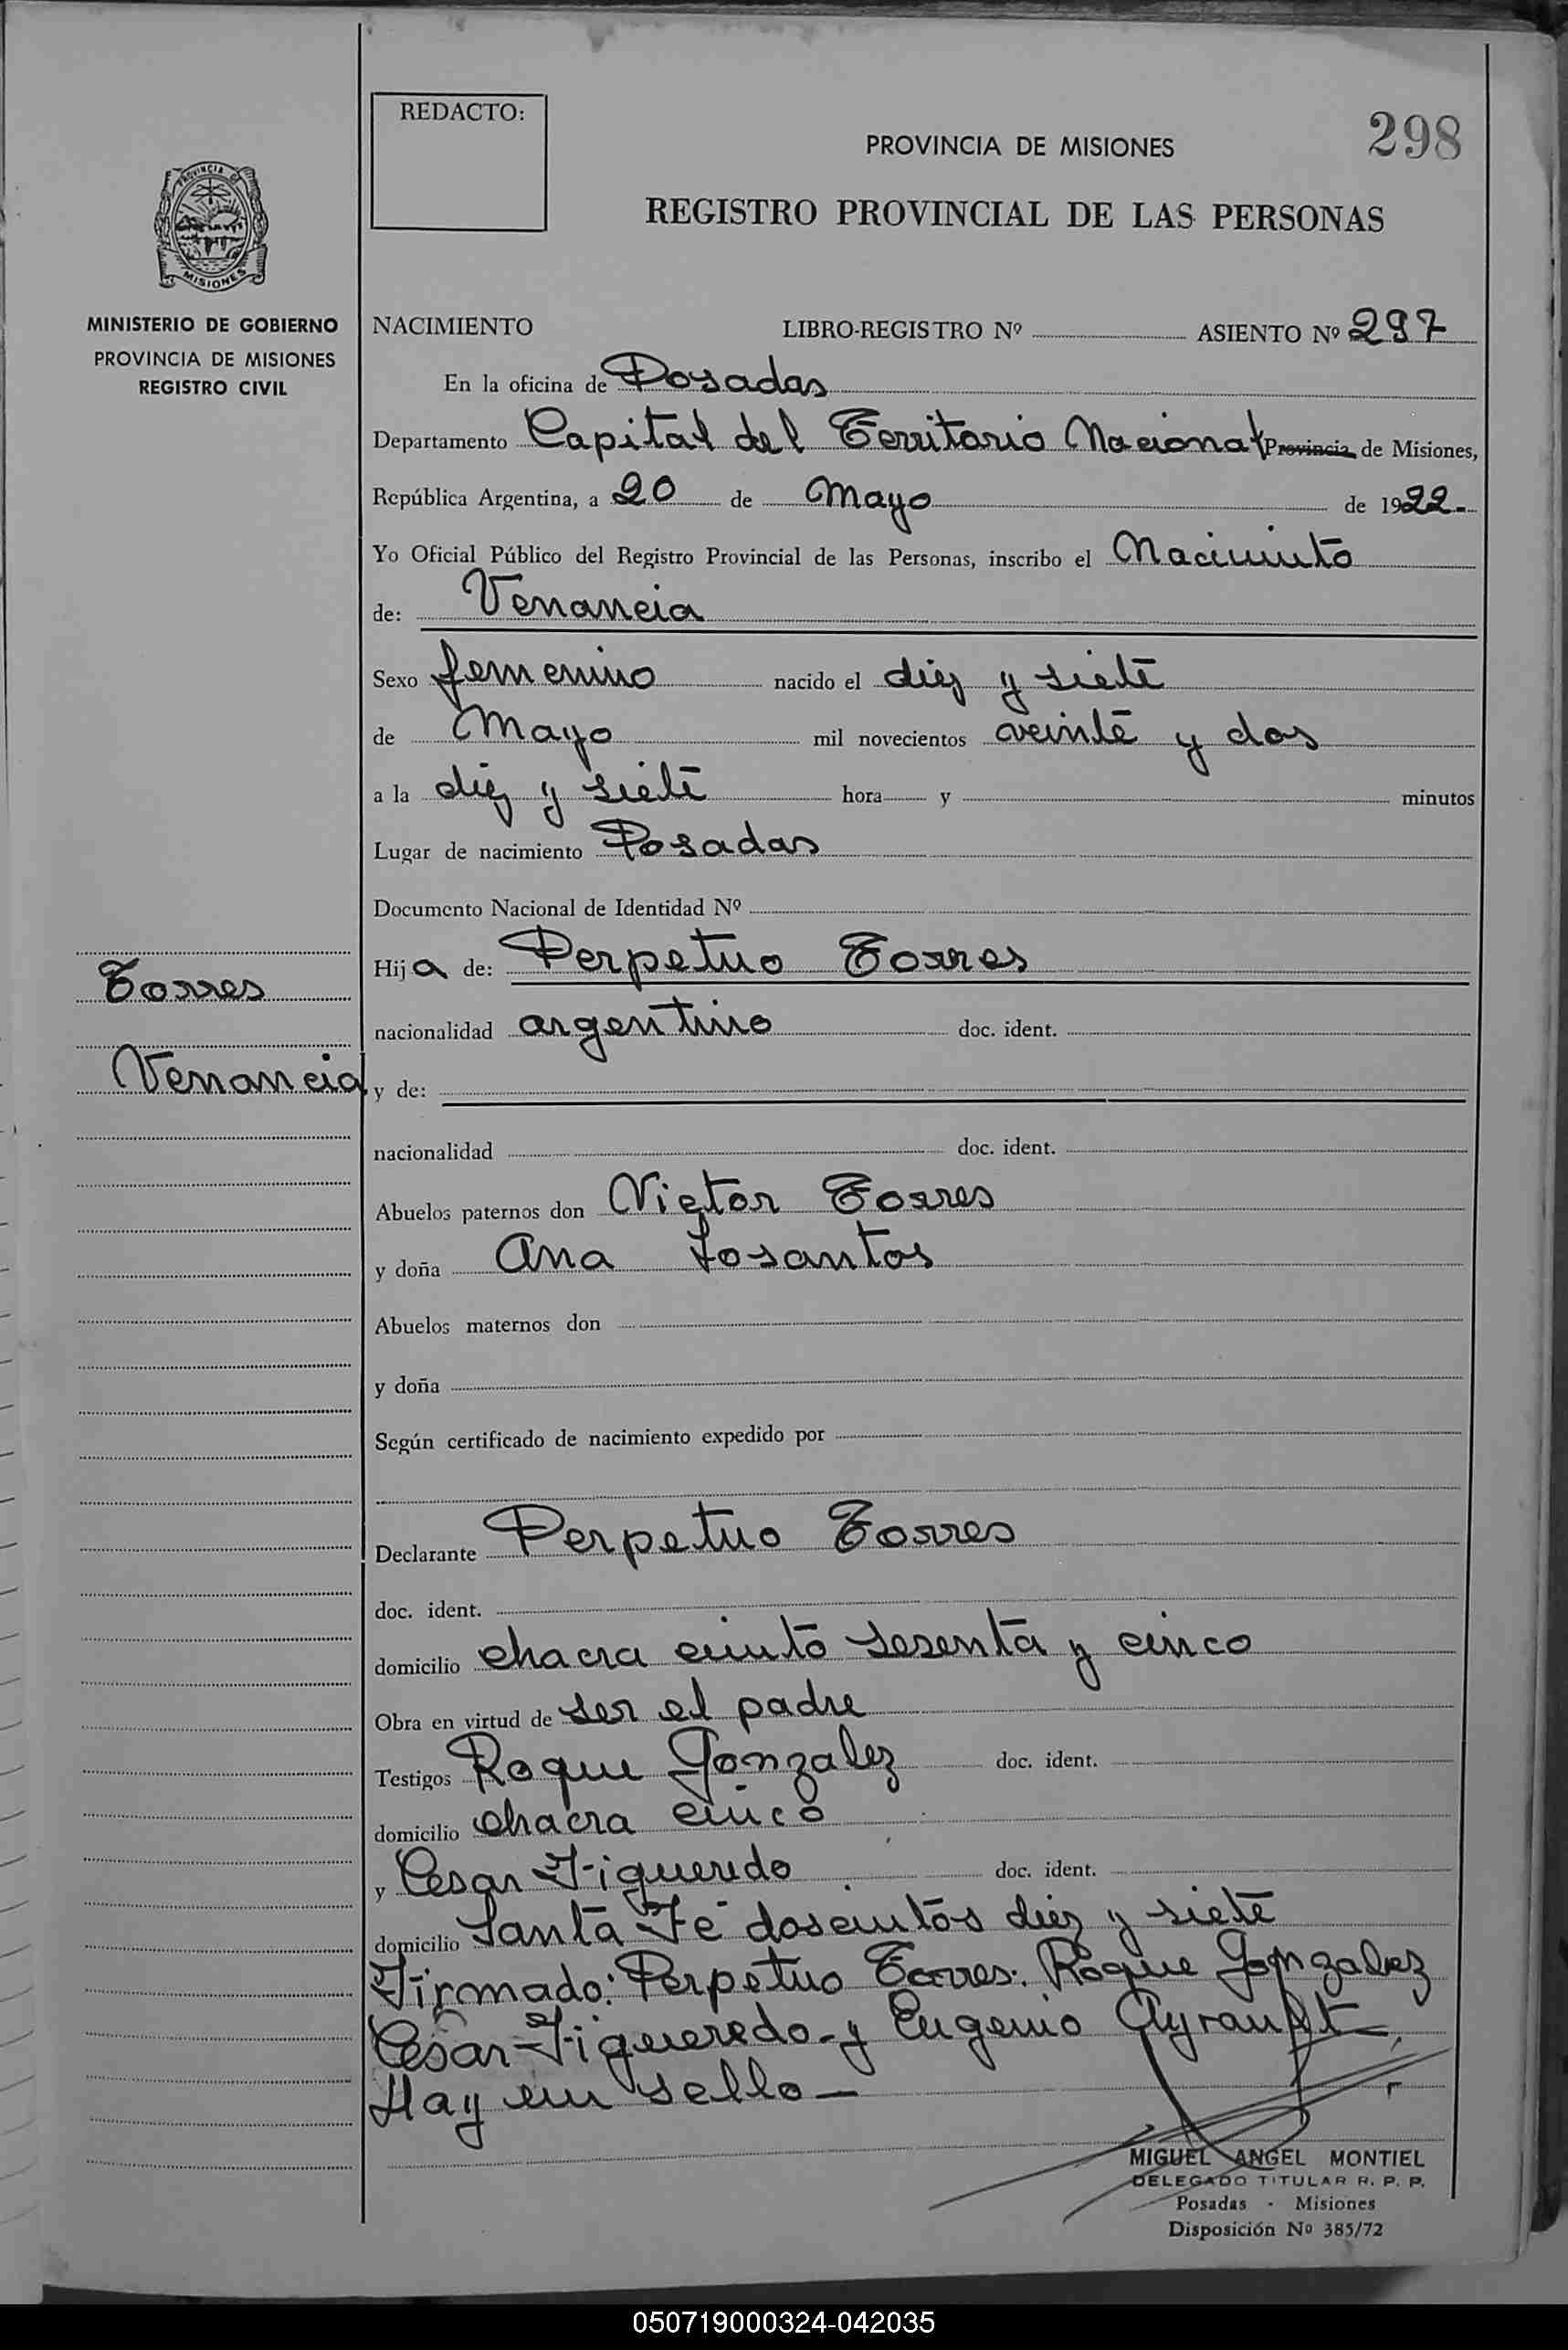 REDACTO:
PROVINCIA DE MISIONES
298
REGISTRO PROVINCIAL DE LAS PERSONAS
PROVINCIA DE
MISIONES
MINISTERIO DE GOBIERNO
PROVINCIA DE MISIONES
REGISTRO CIVIL
NACIMIENTO LIBRO-REGISTRO Nº ASIENTO Nº 297
En la oficina de Posadas
Departamento Capital del Territorio Nacional Provincia de Misiones,
República Argentina, a 20 de Mayo de 1922.-
Yo Oficial Público del Registro Provincial de las Personas, inscribo el Nacimiento
de: Venancia
Sexo femenino nacido el diez y siete
de Mayo mil novecientos veinte y dos
a la diez y siete hora y minutos
Lugar de nacimiento Posadas
Documento Nacional de Identidad Nº
Torres
Venancia
Hija de: Perpetuo Torres
nacionalidad argentino doc. ident.
y de:
nacionalidad doc. ident.
Abuelos paternos don Victor Torres
y doña Ana Losantos
Abuelos maternos don
y doña
Según certificado de nacimiento expedido por
Declarante Perpetuo Torres
doc. ident.
domicilio chacra ciento sesenta y cinco
Obra en virtud de ser el padre
Testigos Roque Gonzalez doc. ident.
domicilio chacra cinco
y Cesar Figueredo doc. ident.
domicilio Santa Fe doscientos diez y siete
Firmado: Perpetuo Torres: Roque Gonzalez
Cesar Figueredo - y Eugenio Ayrault
Hay un sello -
MIGUEL ANGEL MONTIEL
DELEGADO TITULAR R. P. P.
Posadas - Misiones
Disposición Nº 385/72
050719000324-042035